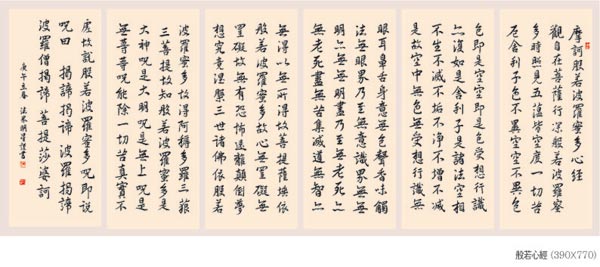 摩訶般若波羅蜜多心經
觀自在菩薩行深般若波羅蜜
多時照見五蘊皆空度一切苦
厄舍利子色不異空空不異色
色即是空空即是色受想行識
亦復如是舍利子是諸法空相
不生不滅不垢不淨不增不減
是故空中無色無受想行識無
眼耳鼻舌身意無色聲香味觸
法無眼界乃至無意識界無無
明亦無無明盡乃至無老死亦
無老死盡無苦集滅道無智亦
無得以無所得故菩提薩埵依
般若波羅蜜多故心無罣礙無
罣礙故無有恐怖遠離顛倒夢
想究竟涅槃三世諸佛依般若
波羅蜜多故得阿耨多羅三藐
三菩提故知般若波羅蜜多是
大神呪是大明呪是無上呪是
無等等呪能除一切苦真實不
虛故說般若波羅蜜多呪即說
呪曰 揭諦揭諦 波羅揭諦
波羅僧揭諦 菩提莎婆訶
立春 謹書
般若心經 (390X770)